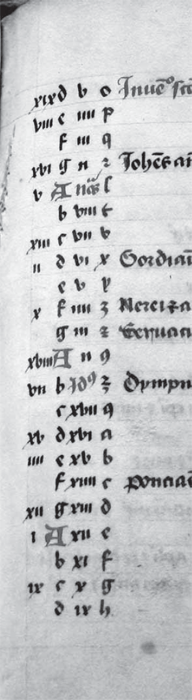 xix d v o Inuēᵒ sctē
viii e iiii p
f iii q
xvi g ii r Johēs an
v A nās ſ
b viii t
xiii c vii v
ii d vi x Gordian
e v y
x f iiii z Nerei
g iii Seruaci
xviii A ii 9
vii b Id9
c xvii
xv d xvi a
iiii e xv b
f xiiii c
xii g xiii d
i A xii e
b xi f
ix c x g
d ix h